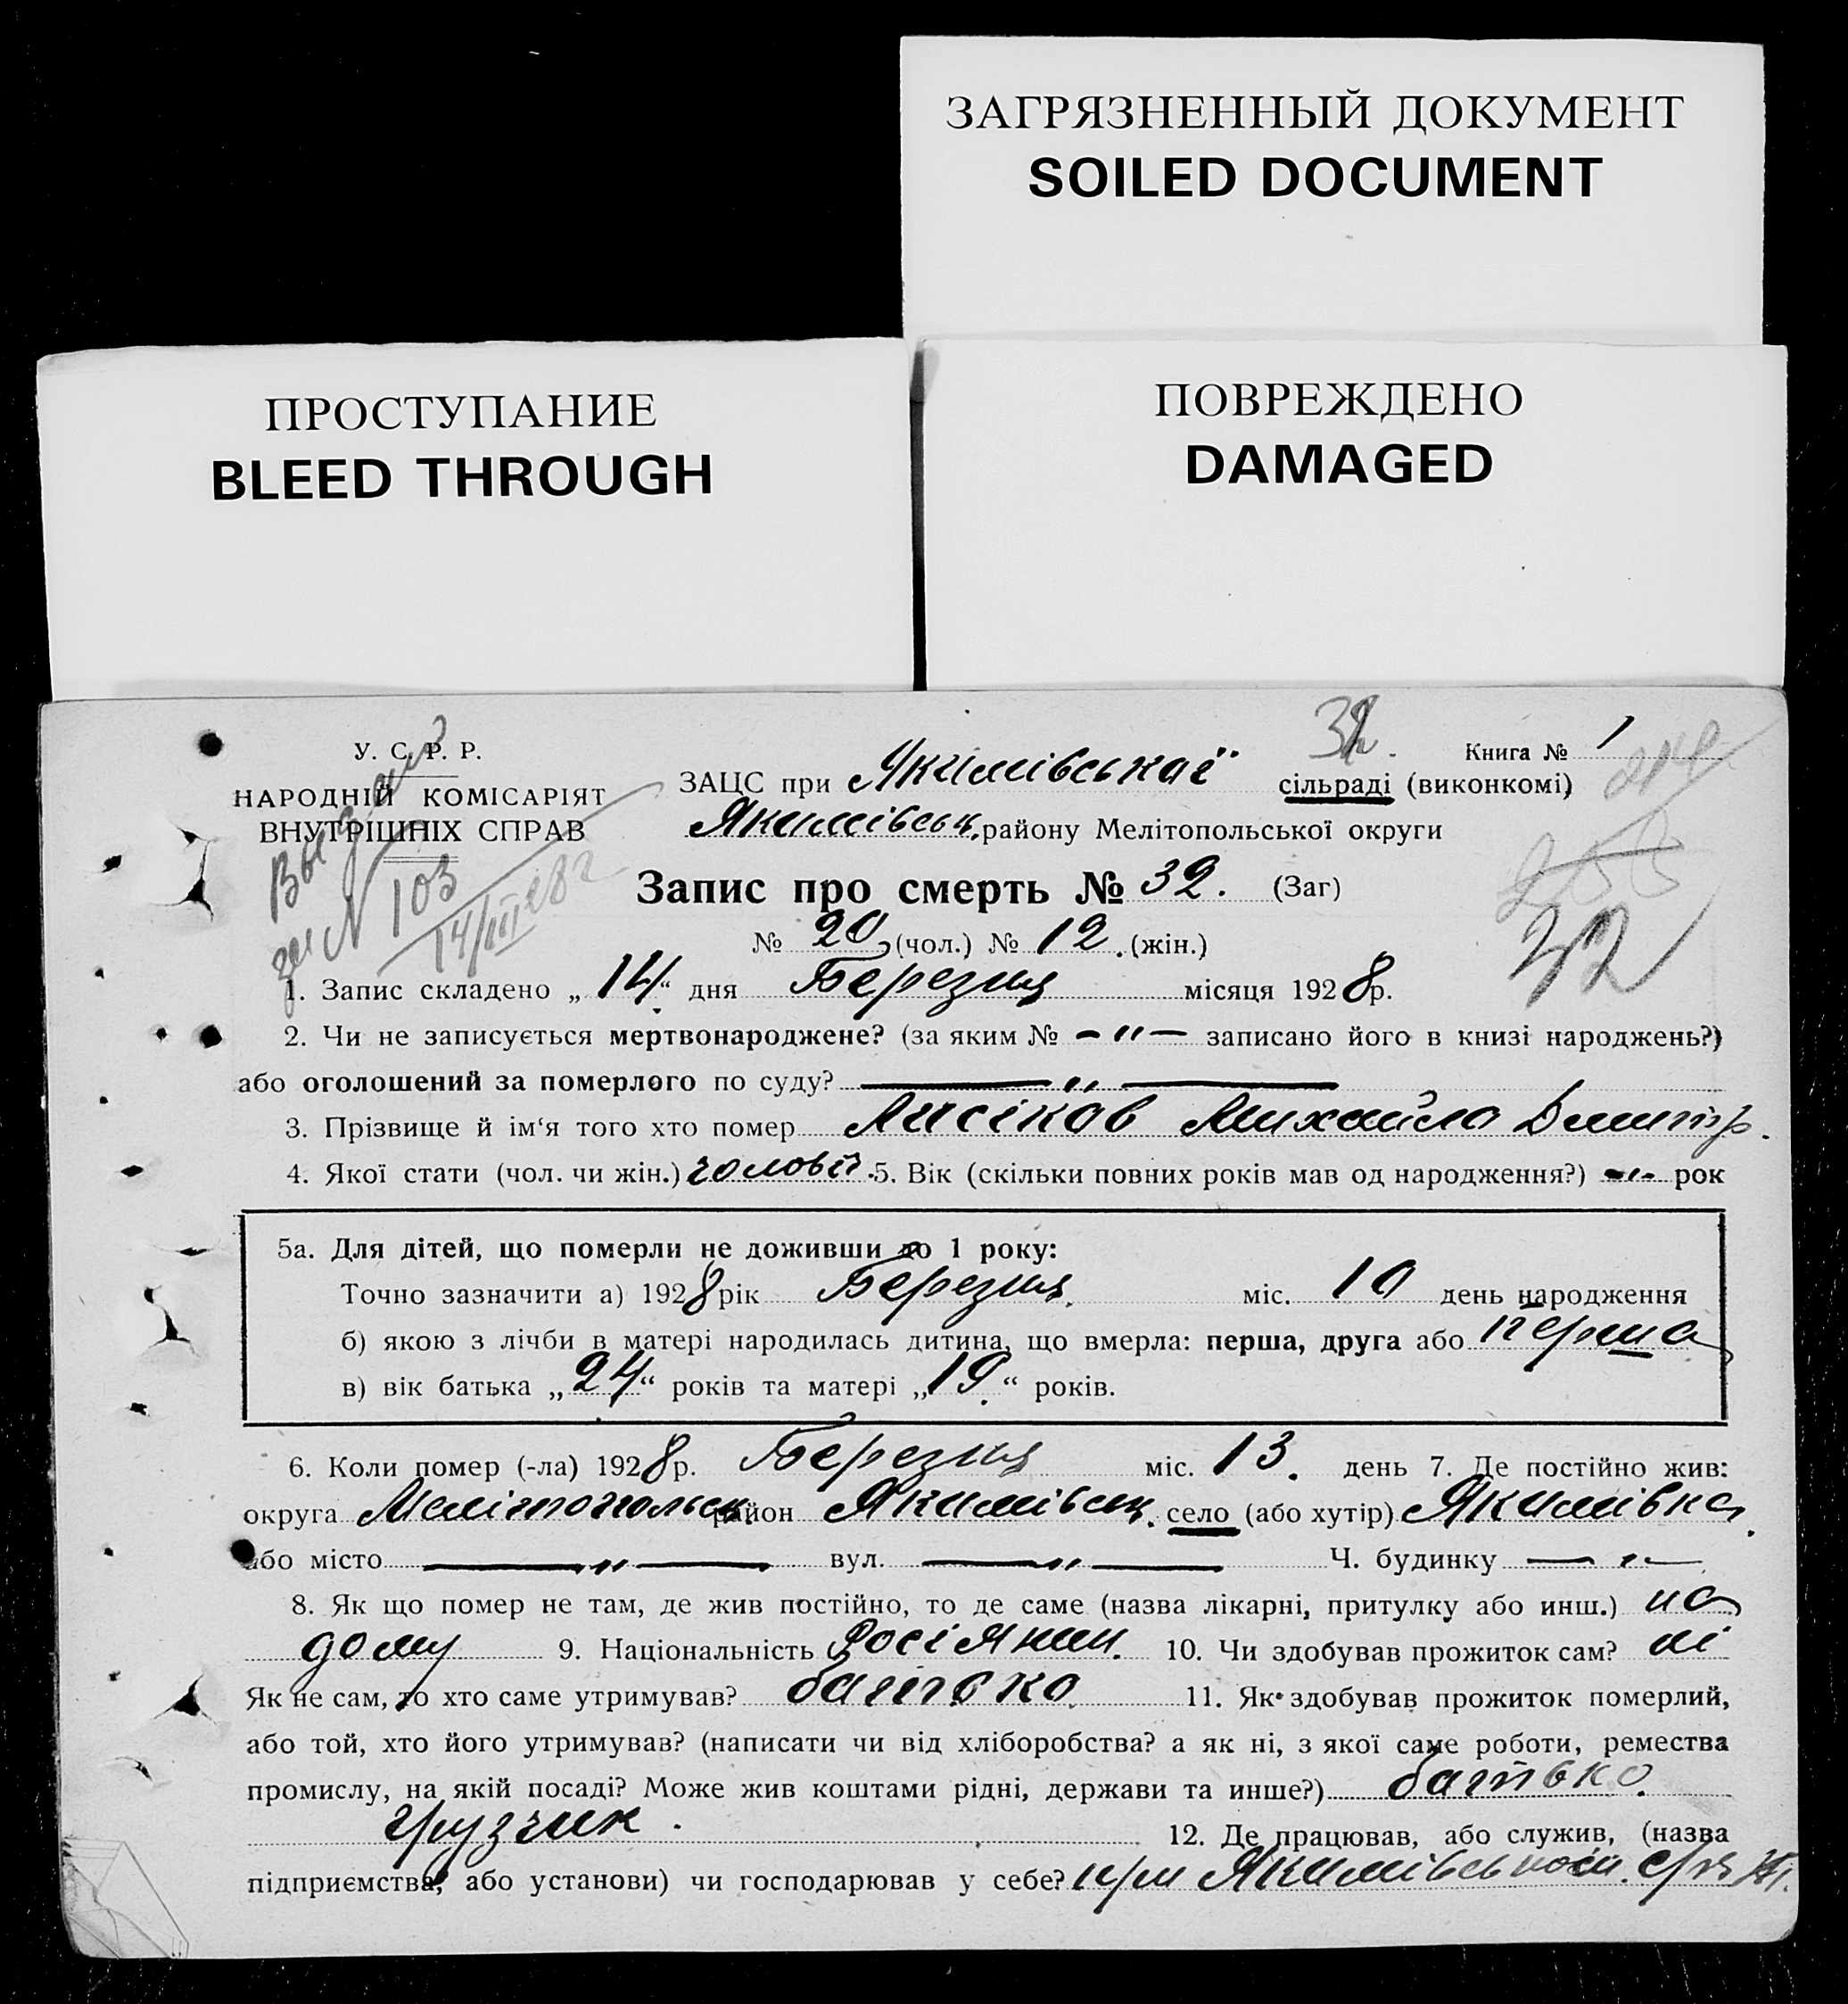 ЗАГРЯЗНЕННЫЙ ДОКУМЕНТ
SOILED DOCUMENT
ПРОСТУПАНИЕ
BLEED THROUGH
ПОВРЕЖДЕНО
DAMAGED
У. С. Р. Р.
НАРОДНІЙ КОМІСАРІЯТ
ВНУТРІШНІХ СПРАВ
Выдан
за N 103
14/III 28 г
32.
Книга № 1
ЗАЦС при Якимівськаї сільраді (виконкомі)
Якимівськ. району Мелітопольської округи
Запис про смерть № 32. (Заг)
№ 20 (чол.) № 12. (жін.)
32
1. Запис складено „14“ дня Березня місяця 1928р.
2. Чи не записується мертвонароджене? (за яким № – " – записано його в книзі народжень?)
або оголошений за померлого по суду? — " —
3. Прізвище й ім‘я того хто помер Лисіков Михайло Дмитр.
4. Якої стати (чол. чи жін.) чоловіч. 5. Вік (скільки повних років мав од народження?) -"- рок
5а. Для дітей, що померли не доживши до 1 року:
Точно зазначити а) 1928рік Березня міс. 10 день народження
б) якою з лічби в матері народилась дитина, що вмерла: перша, друга або перша
в) вік батька „24“ років та матері „19“ років.
6. Коли помер (-ла) 1928р. Березня міс. 13. день 7. Де постійно жив:
округа Мелітопольськ. район Якимівськ. село (або хутір) Якимівка.
або місто — " — вул. — " — Ч. будинку — " —
8. Як що помер не там, де жив постійно, то де саме (назва лікарні, притулку або инш.) на
дому 9. Національність Росіянин. 10. Чи здобував прожиток сам? ні
Як не сам, то хто саме утримував? батько 11. Як здобував прожиток померлий,
або той, хто його утримував? (написати чи від хліборобства? а як ні, з якої саме роботи, ремества
промислу, на якій посаді? Може жив коштами рідні, держави та инше?) батько.
грузчик.
12. Де працював, або служив, (назва
підприємства, або установи) чи господарював у себе? при Якимівськом.